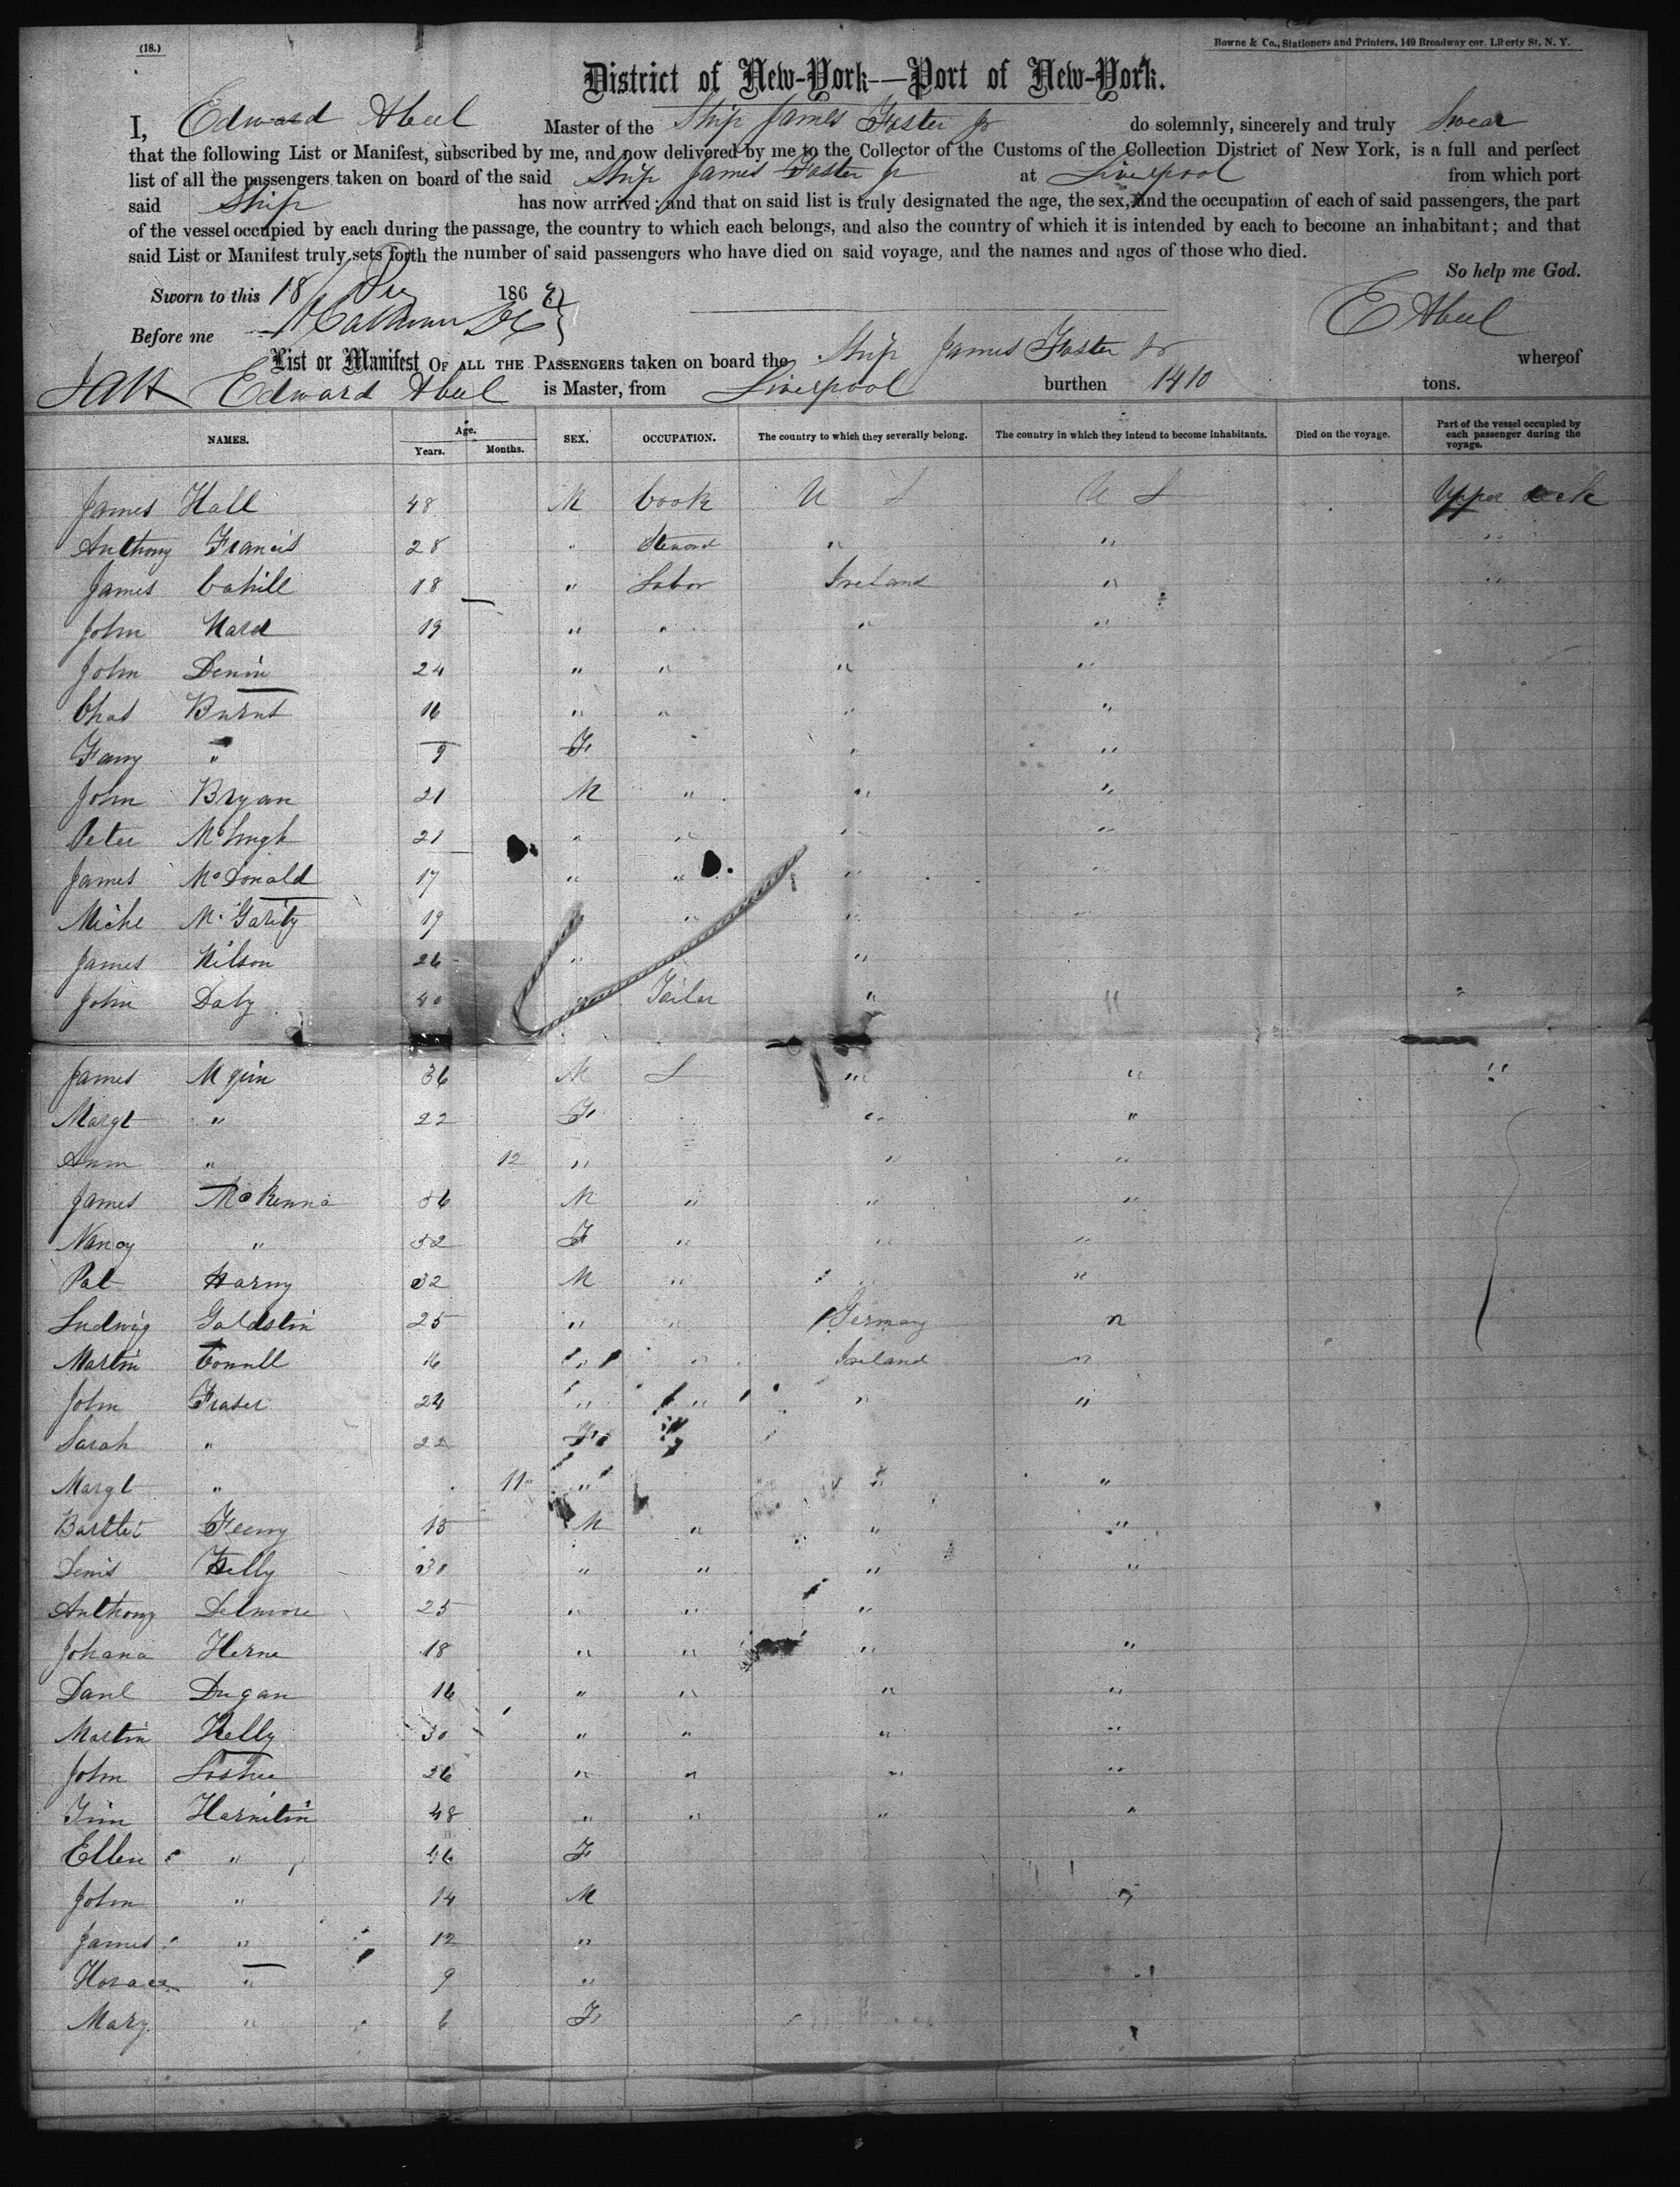 (18.)
Bowne & Co., Stationers and Printers, 149 Broadway cor. Liberty St. N. Y.
District of New-York—Port of New-York.
I, Edward Abeel Master of the Ship James Foster Jr do solemnly, sincerely and truly Swear
that the following List or Manifest, subscribed by me, and now delivered by me to the Collector of the Customs of the Collection District of New York, is a full and perfect
list of all the passengers taken on board of the said Ship James Foster Jr at Liverpool from which port
said Ship has now arrived; and that on said list is truly designated the age, the sex, and the occupation of each of said passengers, the part
of the vessel occupied by each during the passage, the country to which each belongs, and also the country of which it is intended by each to become an inhabitant; and that
said List or Manifest truly sets forth the number of said passengers who have died on said voyage, and the names and ages of those who died.
So help me God.
Sworn to this 18 186
Before me E Abeel
List or Manifest OF ALL THE PASSENGERS taken on board the Ship James Foster Jr whereof
Edward Abeel is Master, from Liverpool burthen 1410 tons.
NAMES. Age. Years. Months. SEX. OCCUPATION. The country to which they severally belong. The country in which they intend to become inhabitants. Died on the voyage. Part of the vessel occupied by each passenger during the voyage.
James Hall 48 M Cook U S U S Upper deck
Anthony Francis 28 " Steward " " "
James Cahill 18 " Labor Ireland " "
John Ward 19 " " " "
John Denin 24 " " " "
Chas Burns 16 " " " "
Fanny " 9 F " "
John Bryan 21 M " " "
Peter McHugh 21 " " " "
James McDonald 17 " " " "
Miche McGarity 19 " " " "
James Wilson 26 " "
John Daly 40 " Tailor " " "
James Mginn 36 M L " " "
Margt " 22 F " "
Ann " 12 " " "
James McKenna 56 M " " "
Nancy " 52 F " " "
Pat Harny 32 M " " "
Ludwig Goldstin 25 " " Germany "
Martin Connell 16 " " Ireland "
John Fraser 24 " " " "
Sarah " 22 F
Margt " 11 " " "
Bartlet Feeny 15 M " " "
Denis Kelly 30 " " " "
Anthony Delmore 25 " " "
Johana Herne 18 " " " "
Danl Dugan 16 " " " "
Martin Kelly 30 " " " "
John 26 " " " "
Tim 48 " " " "
Ellen " 46 F
John " 14 M "
James " 12 "
Horace " 9 "
Mary " 6 F